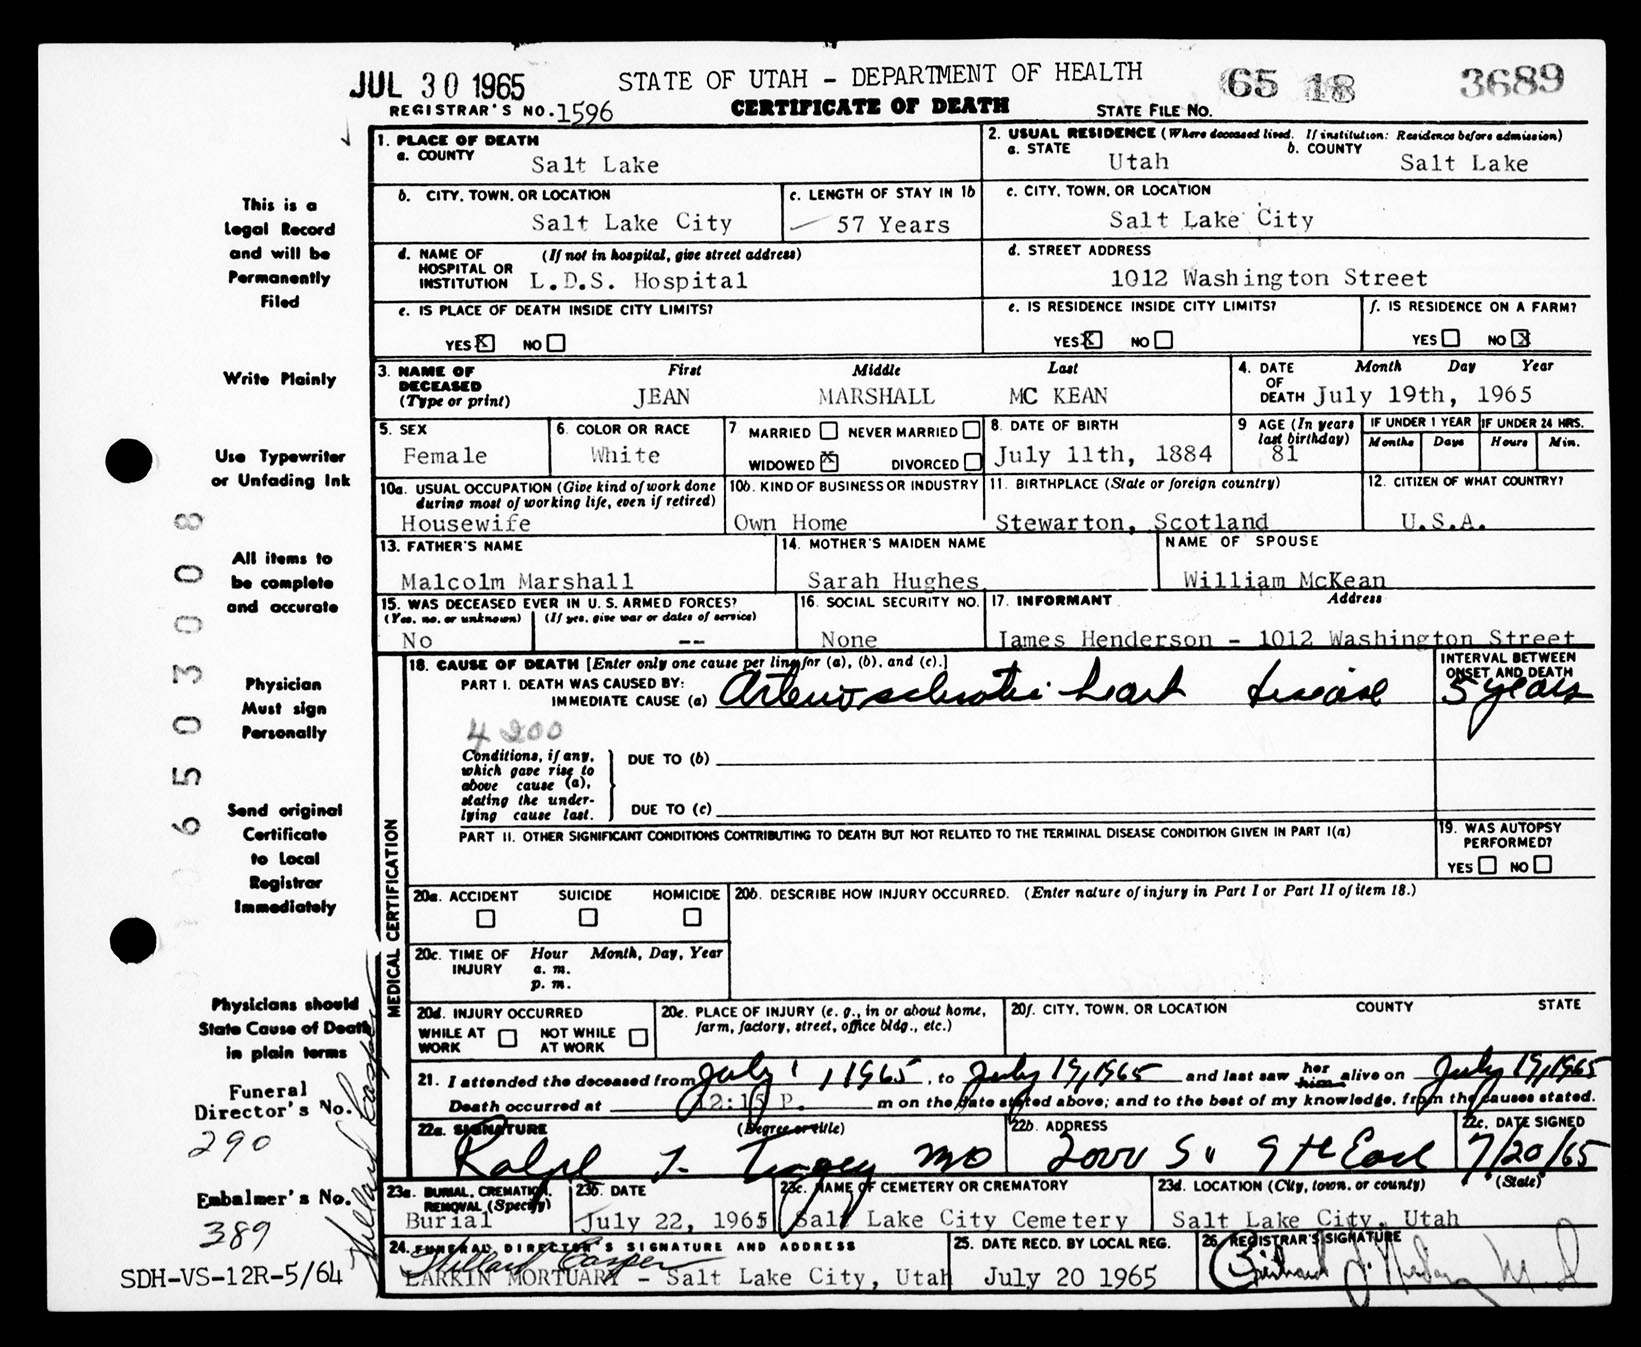 JUL 30 1965
STATE OF UTAH - DEPARTMENT OF HEALTH
65 18 3689
REGISTRAR'S NO. 1596
CERTIFICATE OF DEATH
STATE FILE NO.
This is a
Legal Record
and will be
Permanently
Filed
Write Plainly
Use Typewriter
or Unfading Ink
All items to
be complete
and accurate
Physician
Must sign
Personally
Send original
Certificate
to Local
Registrar
Immediately
Physicians should
State Cause of Death
in plain terms
Funeral
Director's No.
290
Embalmer's No.
389
SDH-VS-12R-5/64
06503008
1. PLACE OF DEATH
a. COUNTY
Salt Lake
2. USUAL RESIDENCE (Where deceased lived. If institution: Residence before admission)
a. STATE b. COUNTY
Utah Salt Lake
b. CITY, TOWN, OR LOCATION
Salt Lake City
c. LENGTH OF STAY IN 1b
57 Years
c. CITY, TOWN, OR LOCATION
Salt Lake City
d. NAME OF (If not in hospital, give street address)
HOSPITAL OR
INSTITUTION L.D.S. Hospital
d. STREET ADDRESS
1012 Washington Street
e. IS PLACE OF DEATH INSIDE CITY LIMITS?
YES X NO
e. IS RESIDENCE INSIDE CITY LIMITS?
YES X NO
f. IS RESIDENCE ON A FARM?
YES NO X
3. NAME OF First Middle Last
DECEASED
(Type or print) JEAN MARSHALL MC KEAN
4. DATE Month Day Year
OF
DEATH July 19th, 1965
5. SEX
Female
6. COLOR OR RACE
White
7 MARRIED NEVER MARRIED
WIDOWED X DIVORCED
8. DATE OF BIRTH
July 11th, 1884
9 AGE (In years
last birthday)
81
IF UNDER 1 YEAR IF UNDER 24 HRS.
Months Days Hours Min.
10a. USUAL OCCUPATION (Give kind of work done
during most of working life, even if retired)
Housewife
10b. KIND OF BUSINESS OR INDUSTRY
Own Home
11. BIRTHPLACE (State or foreign country)
Stewarton, Scotland
12. CITIZEN OF WHAT COUNTRY?
U.S.A.
13. FATHER'S NAME
Malcolm Marshall
14. MOTHER'S MAIDEN NAME
Sarah Hughes
NAME OF SPOUSE
William McKean
15. WAS DECEASED EVER IN U. S. ARMED FORCES?
(Yes, no, or unknown) (If yes, give war or dates of service)
No --
16. SOCIAL SECURITY NO.
None
17. INFORMANT Address
James Henderson - 1012 Washington Street
MEDICAL CERTIFICATION
18. CAUSE OF DEATH [Enter only one cause per line for (a), (b), and (c).]
PART I. DEATH WAS CAUSED BY:
IMMEDIATE CAUSE (a) Arteriosclerotic heart disease
INTERVAL BETWEEN
ONSET AND DEATH
5 years
4 200
Conditions, if any,
which gave rise to
above cause (a),
stating the under-
lying cause last.
DUE TO (b)
DUE TO (c)
PART II. OTHER SIGNIFICANT CONDITIONS CONTRIBUTING TO DEATH BUT NOT RELATED TO THE TERMINAL DISEASE CONDITION GIVEN IN PART I(a)
19. WAS AUTOPSY
PERFORMED?
YES NO
20a. ACCIDENT SUICIDE HOMICIDE
20b. DESCRIBE HOW INJURY OCCURRED. (Enter nature of injury in Part I or Part II of item 18.)
20c. TIME OF Hour Month, Day, Year
INJURY a. m.
p. m.
20d. INJURY OCCURRED
WHILE AT NOT WHILE
WORK AT WORK
20e. PLACE OF INJURY (e. g., in or about home,
farm, factory, street, office bldg., etc.)
20f. CITY, TOWN, OR LOCATION COUNTY STATE
21. I attended the deceased from July 1, 1965, to July 19, 1965 and last saw her him alive on July 19, 1965
Death occurred at 12:15 P. m on the date stated above; and to the best of my knowledge, from the causes stated.
22a. SIGNATURE (Degree or title)
Ralph MD
22b. ADDRESS
2000 So 9th East
22c. DATE SIGNED
7/20/65
23a. BURIAL, CREMATION,
REMOVAL (Specify)
Burial
23b. DATE
July 22, 1965
23c. NAME OF CEMETERY OR CREMATORY
Salt Lake City Cemetery
23d. LOCATION (City, town, or county) (State)
Salt Lake City, Utah
24. FUNERAL DIRECTOR'S SIGNATURE AND ADDRESS
Willard Casper
LARKIN MORTUARY - Salt Lake City, Utah
25. DATE RECD. BY LOCAL REG.
July 20 1965
26. REGISTRAR'S SIGNATURE